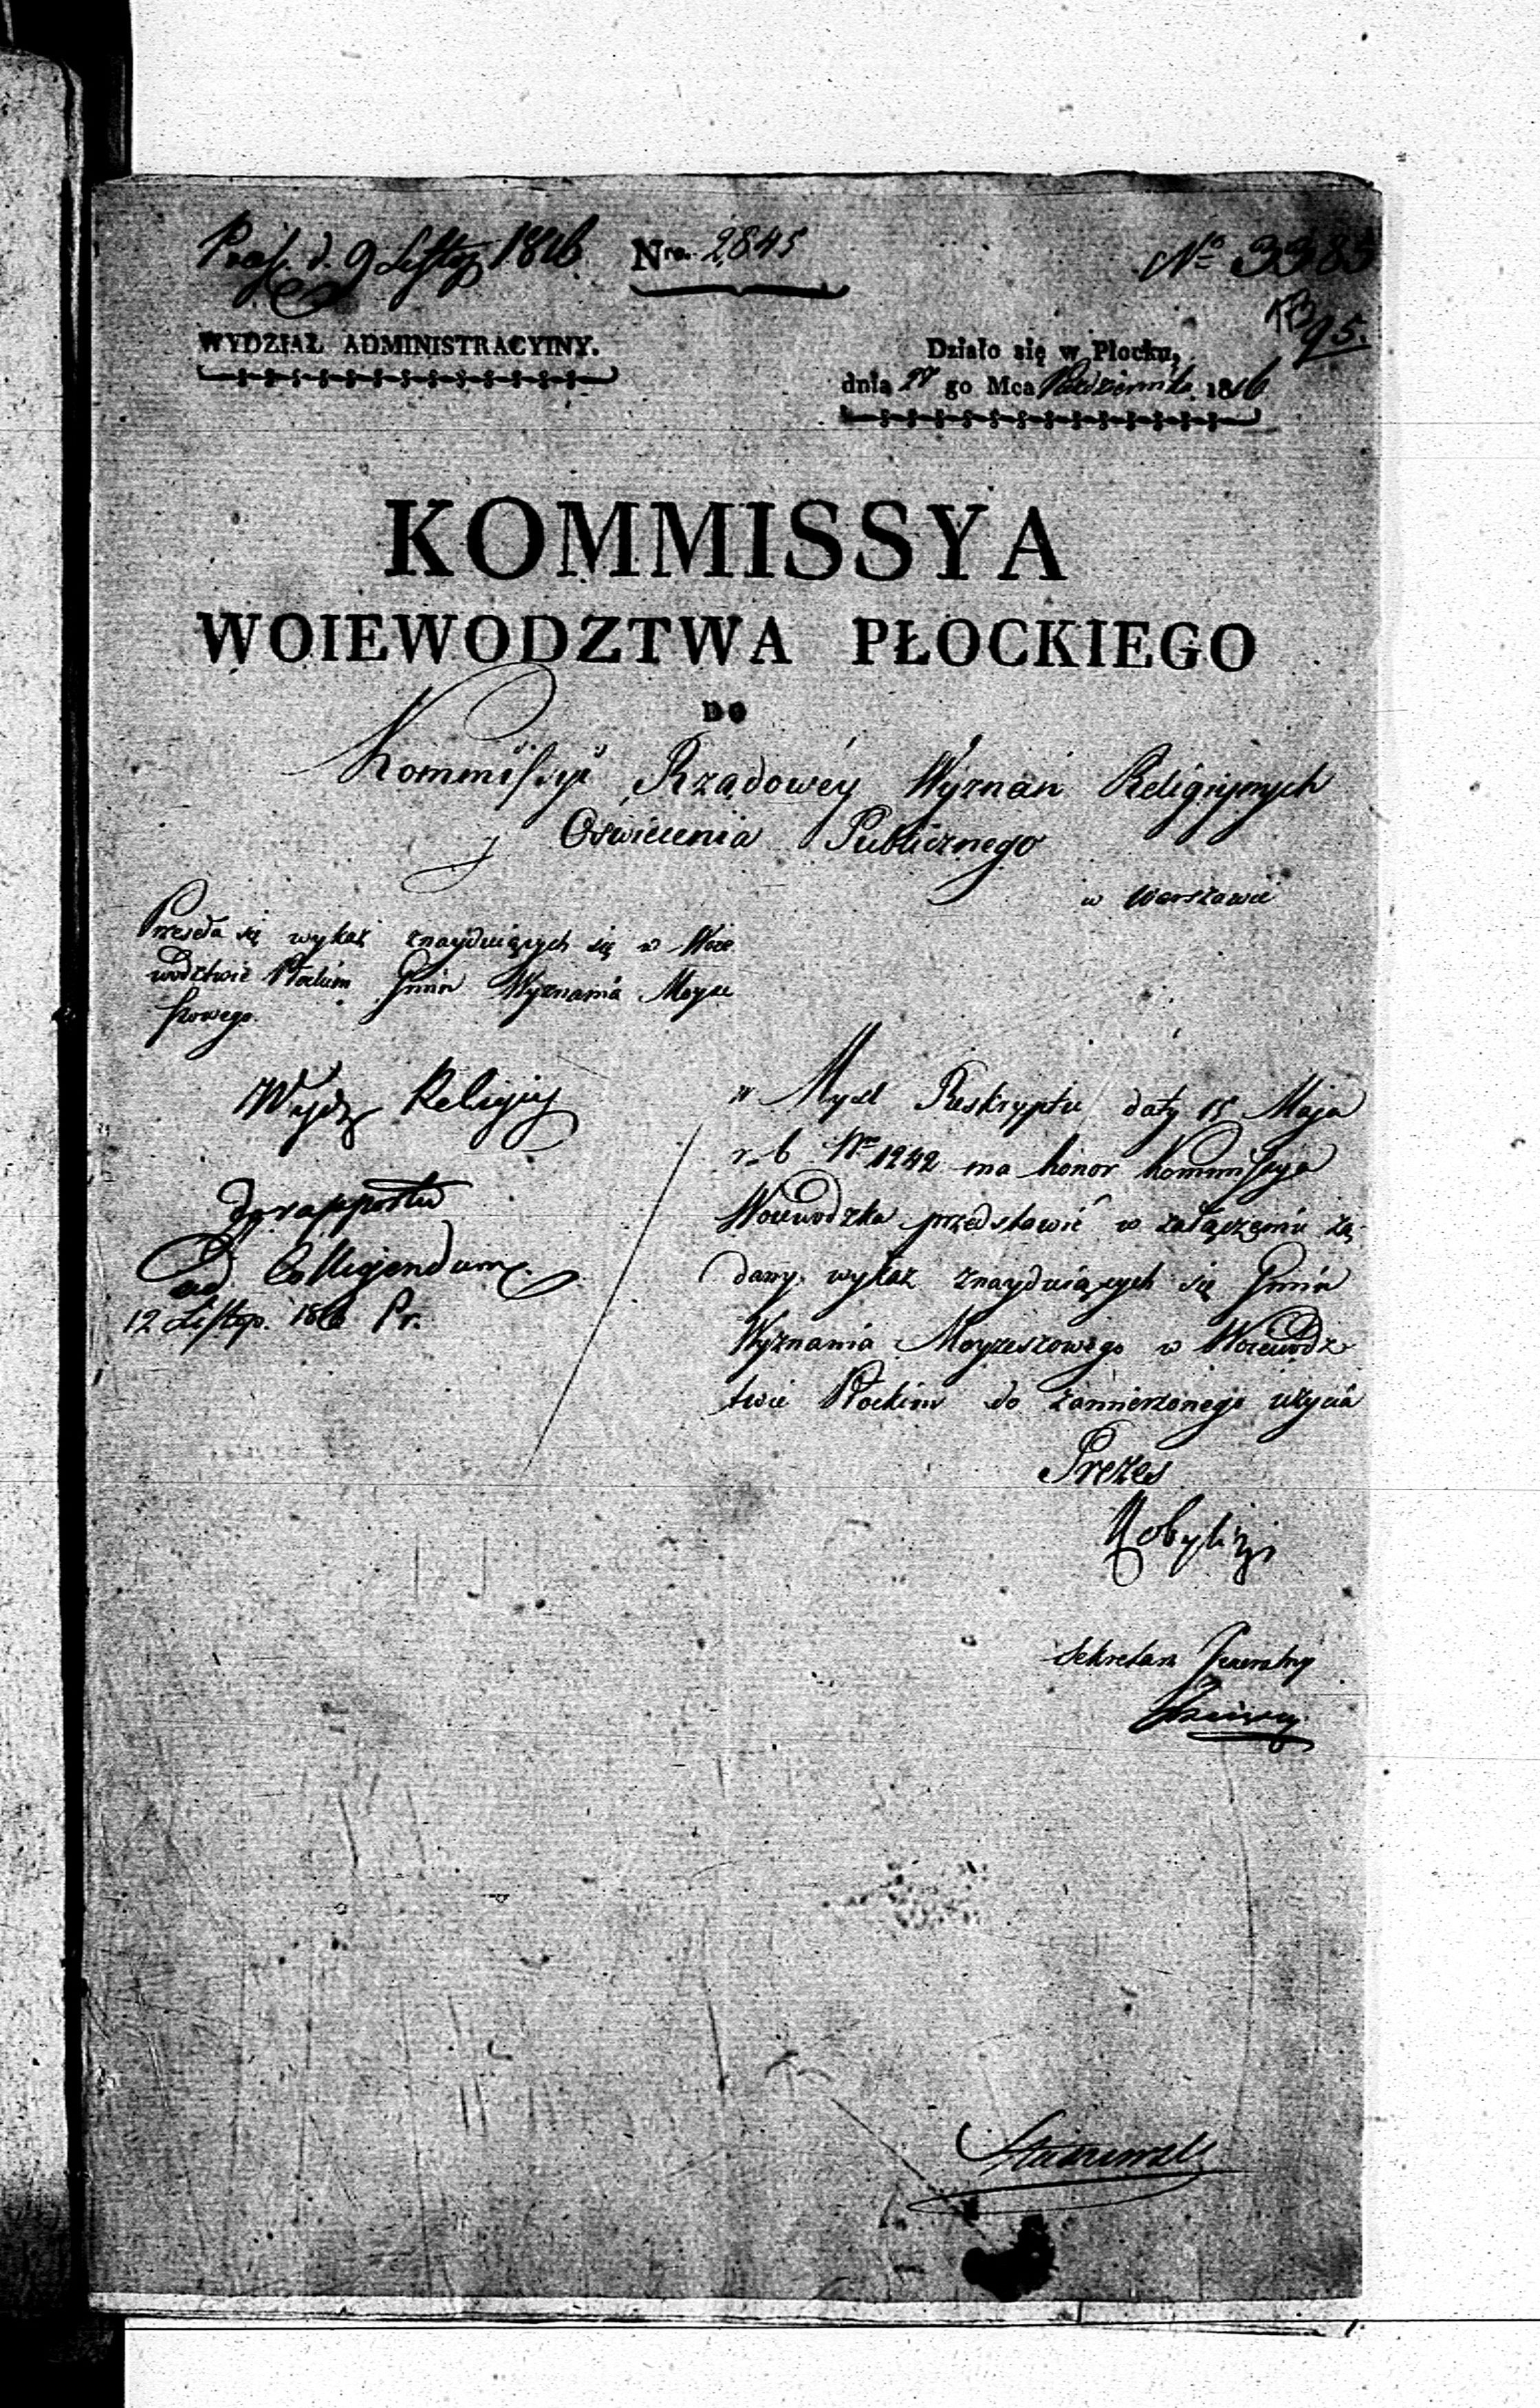 Præs. d. 9 Listop 1816. Nro. 2845
No 3385
95.
WYDZIAŁ ADMINISTRACYINY.
Działo się w Płocku,
dnia go Mca Października 1816
KOMMISSYA
WOIEWODZTWA PŁOCKIEGO
DO
Kommissyi Rządowéy Wyznań Religiynych
y Oświecenia Publicznego
w Warszawie
Przeseła się wykaz znayduiących się w Woie
wodztwie Płockim Gmin Wyznania Moyże
szowego.
Wydz Religiy
Do rapportu
ad Colligendum
12 Listop. 1816 Pr.
W Myśl Reskryptu daty 15 Maja
r. b Nro 1242 ma honor Kommissya
Woiewodzka przedstawić w załączeniu żą-
dany wykaz znayduiących się Gmin
Wyznania Moyżeszowego w Woiewodz-
twie Płockim do zamierzonego użycia
Prezes
Kobylińs
Sekretarz Jeneralny